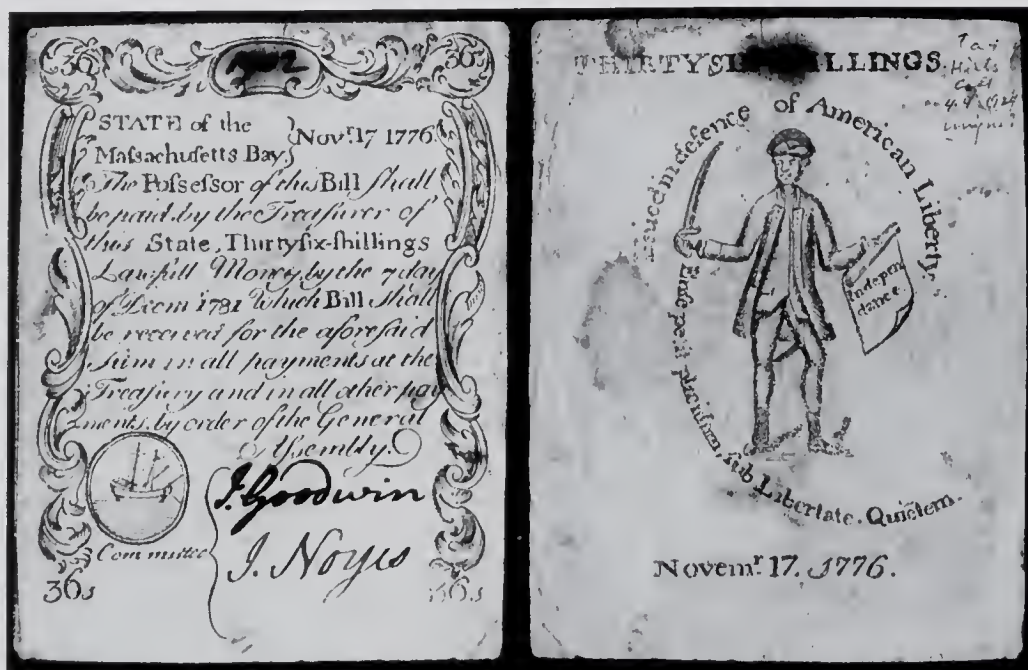 36s 36s
STATE of the
Maſsachuſetts Bay,
Novr. 17 1776.
The Poſseſsor of this Bill ſhall
be paid by the Treaſurer of
this State, Thirtyſix-ſhillings
Lawfull Money by the 7 day
of Decm 1781 Which Bill ſhall
be received for the aforeſaid
ſum in all payments at the
Treaſury and in all other pay
ments, by order of the General
Aſsembly.
J. Goodwin
Committee
J. Noyes
36s 36s
THIRTYSIX SHILLINGS.
Iſsued in defence of American Liberty.
Enſe petit placidam, ſub Libertate, Quietem.
Indepen
dance.
Novemr. 17. 1776.